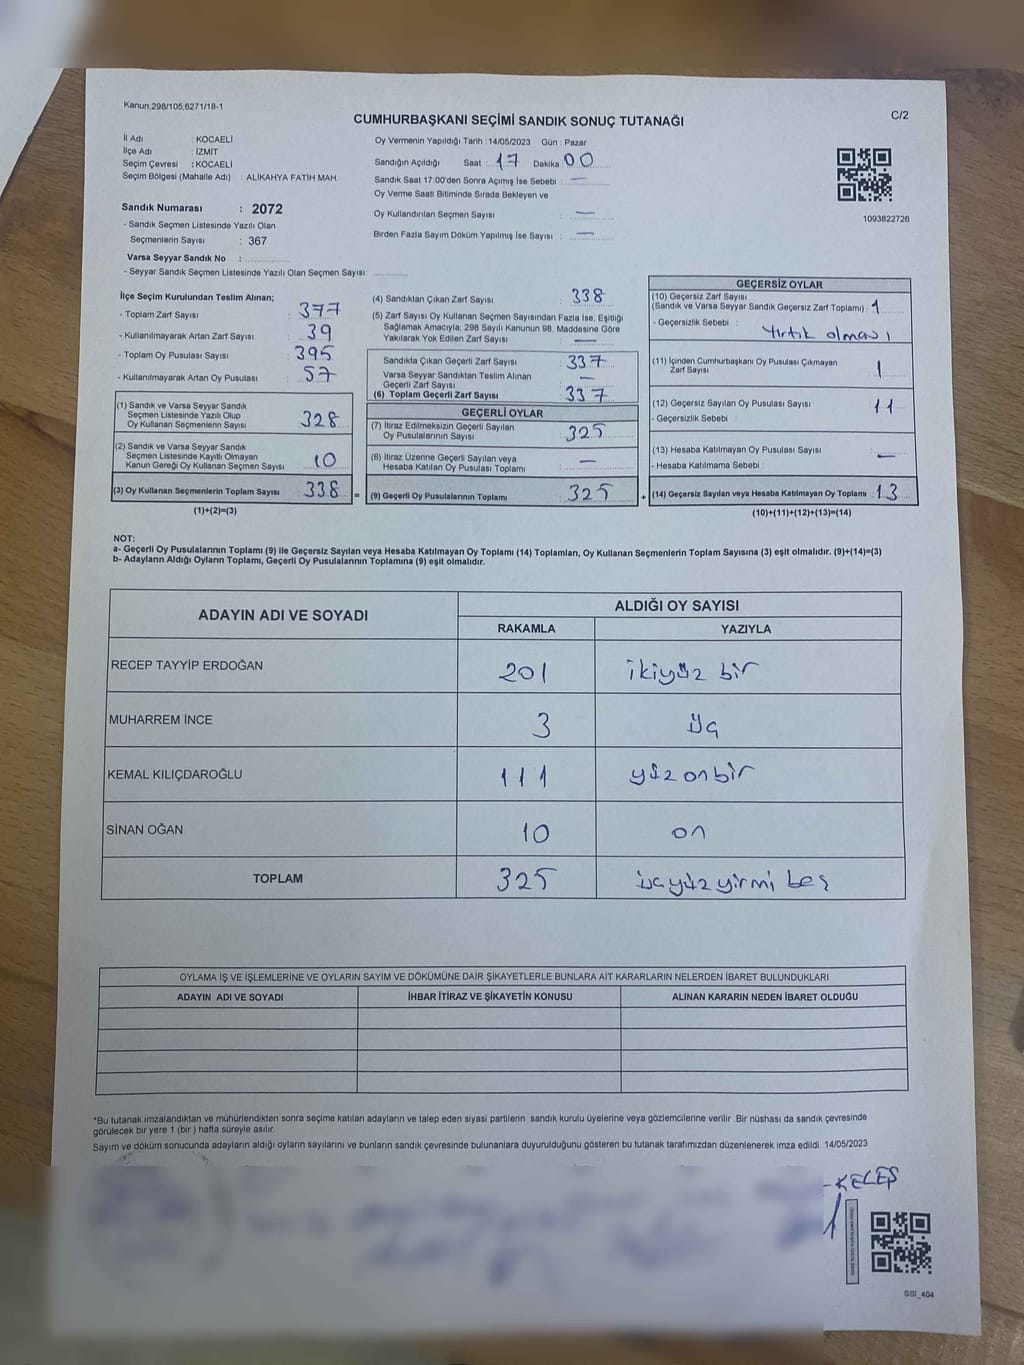 Kanun 298/105,6271/18-1
C/2
CUMHURBAŞKANI SEÇİMİ SANDIK SONUÇ TUTANAĞI
İl Adı : KOCAELİ
İlçe Adı : İZMİT
Seçim Çevresi : KOCAELİ
Seçim Bölgesi (Mahalle Adı) : ALİKAHYA FATİH MAH.
Sandık Numarası : 2072
- Sandık Seçmen Listesinde Yazılı Olan
Seçmenlerin Sayısı : 367
Varsa Seyyar Sandık No :
- Seyyar Sandık Seçmen Listesinde Yazılı Olan Seçmen Sayısı:
Oy Vermenin Yapıldığı Tarih :14/05/2023 Gün : Pazar
Sandığın Açıldığı Saat : 17 Dakika 00
Sandık Saat 17:00'den Sonra Açımış İse Sebebi : —
Oy Verme Saati Bitiminde Sırada Bekleyen ve
Oy Kullandırılan Seçmen Sayısı : —
Birden Fazla Sayım Döküm Yapılmış İse Sayısı : —
1093822726
İlçe Seçim Kurulundan Teslim Alınan;
- Toplam Zarf Sayısı : 377
- Kullanılmayarak Artan Zarf Sayısı : 39
- Toplam Oy Pusulası Sayısı : 395
- Kullanılmayarak Artan Oy Pusulası : 57
(1) Sandık ve Varsa Seyyar Sandık
Seçmen Listesinde Yazılı Olup
Oy Kullanan Seçmenlerin Sayısı : 328
(2) Sandık ve Varsa Seyyar Sandık
Seçmen Listesinde Kayıtlı Olmayan
Kanun Gereği Oy Kullanan Seçmen Sayısı : 10
(3) Oy Kullanan Seçmenlerin Toplam Sayısı : 338 =
(1)+(2)=(3)
(4) Sandıktan Çıkan Zarf Sayısı : 338
(5) Zarf Sayısı Oy Kullanan Seçmen Sayısından Fazla İse, Eşitliği
Sağlamak Amacıyla; 298 Sayılı Kanunun 98. Maddesine Göre
Yakılarak Yok Edilen Zarf Sayısı : —
Sandıkta Çıkan Geçerli Zarf Sayısı : 337
Varsa Seyyar Sandıktan Teslim Alınan
Geçerli Zarf Sayısı : —
(6) Toplam Geçerli Zarf Sayısı : 337
GEÇERLİ OYLAR
(7) İtiraz Edilmeksizin Geçerli Sayılan
Oy Pusulalarının Sayısı : 325
(8) İtiraz Üzerine Geçerli Sayılan veya
Hesaba Katılan Oy Pusulası Toplamı : —
(9) Geçerli Oy Pusulalarının Toplamı : 325 +
GEÇERSİZ OYLAR
(10) Geçersiz Zarf Sayısı
(Sandık ve Varsa Seyyar Sandık Geçersiz Zarf Toplamı) : 1
- Geçersizlik Sebebi : Yırtık olması
(11) İçinden Cumhurbaşkanı Oy Pusulası Çıkmayan
Zarf Sayısı : 1
(12) Geçersiz Sayılan Oy Pusulası Sayısı : 11
- Geçersizlik Sebebi :
(13) Hesaba Katılmayan Oy Pusulası Sayısı : —
- Hesaba Katılmama Sebebi :
(14) Geçersiz Sayılan veya Hesaba Katılmayan Oy Toplamı : 13
(10)+(11)+(12)+(13)=(14)
NOT:
a- Geçerli Oy Pusulalarının Toplamı (9) ile Geçersiz Sayılan veya Hesaba Katılmayan Oy Toplamı (14) Toplamları, Oy Kullanan Seçmenlerin Toplam Sayısına (3) eşit olmalıdır. (9)+(14)=(3)
b- Adayların Aldığı Oyların Toplamı, Geçerli Oy Pusulalarının Toplamına (9) eşit olmalıdır.
ADAYIN ADI VE SOYADI ALDIĞI OY SAYISI
RAKAMLA YAZIYLA
RECEP TAYYİP ERDOĞAN 201 ikiyüz bir
MUHARREM İNCE 3 üç
KEMAL KILIÇDAROĞLU 111 yüz onbir
SİNAN OĞAN 10 on
TOPLAM 325 üçyüz yirmi beş
OYLAMA İŞ VE İŞLEMLERİNE VE OYLARIN SAYIM VE DÖKÜMÜNE DAİR ŞİKAYETLERLE BUNLARA AİT KARARLARIN NELERDEN İBARET BULUNDUKLARI
ADAYIN ADI VE SOYADI İHBAR İTİRAZ VE ŞİKAYETİN KONUSU ALINAN KARARIN NEDEN İBARET OLDUĞU
*Bu tutanak imzalandıktan ve mühürlendikten sonra seçime katılan adayların ve talep eden siyasi partilerin sandık kurulu üyelerine veya gözlemcilerine verilir. Bir nüshası da sandık çevresinde
görülecek bir yere 1 (bir ) hafta süreyle asılır.
Sayım ve döküm sonucunda adayların aldığı oyların sayılarını ve bunların sandık çevresinde bulunanlara duyurulduğunu gösteren bu tutanak tarafımızdan düzenlenerek imza edildi. 14/05/2023
KELEŞ
SSI_404